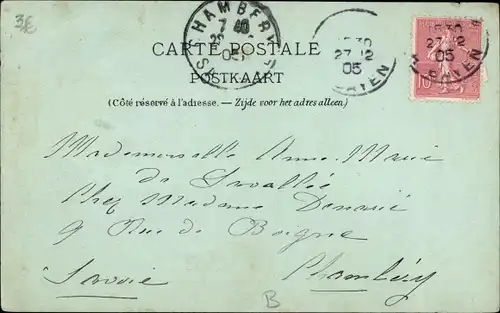 3€
CHAMBERY
7 40
05
SAVOIE
27-12
05
CAYEN
27-12
05
CAYEN
10
CARTE POSTALE
POSTKAART
(Côté réservé à l'adresse. — Zijde voor het adres alleen)
Mademoiselle Anne-Marie
de
Chez Madame
9 Rue de Boigne
Savoie Chambéry
B